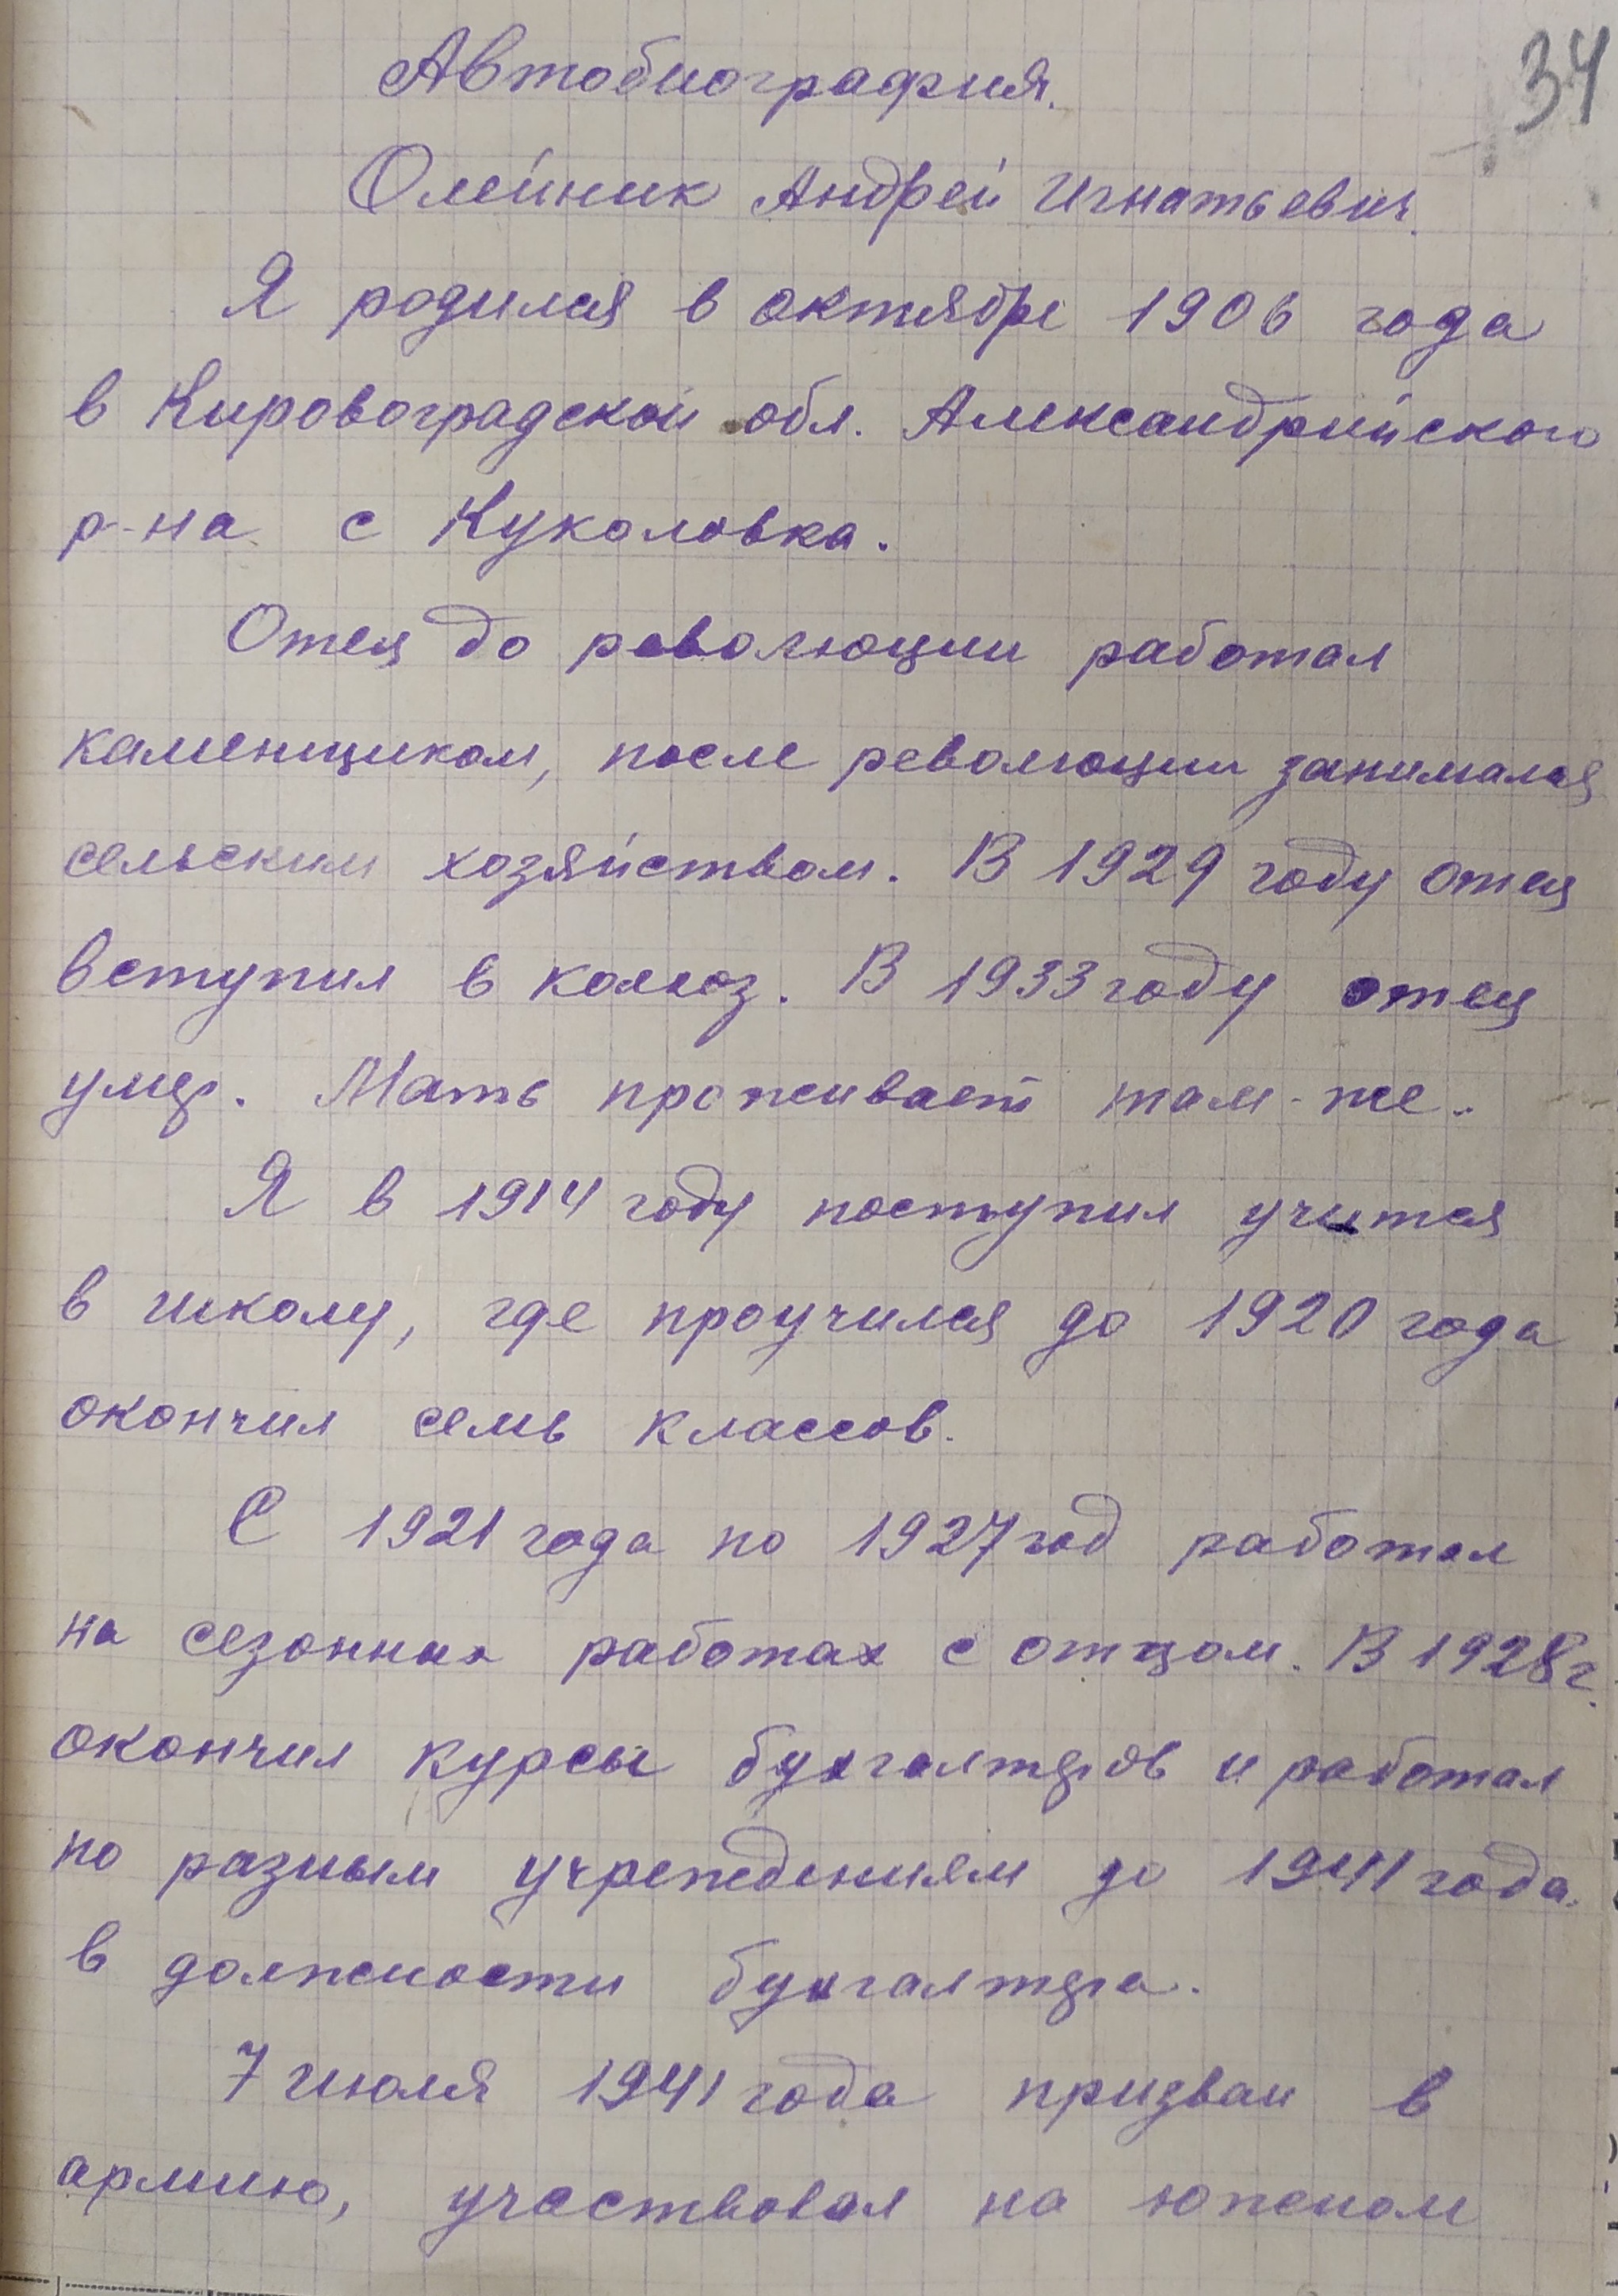 34
Автобиография.
Олейник Андрей Игнатьевич.
Я родился в октябре 1906 года
в Кировоградской обл. Александрийского
р-на с Куколовка.
Отец до революции работал
каменщиком, после революции занимался
сельским хозяйством. В 1929 году отец
вступил в колхоз. В 1933 году отец
умер. Мать проживает там-же.
Я в 1914 году поступил учится
в школу, где проучился до 1920 года
окончил семь классов.
С 1921 года по 1927 год работал
на сезонних работах с отцом. В 1928 г.
окончил курсы бухгалтеров и работал
по разным учреждениям до 1941 года.
в должности бухгалтера.
7 июля 1941 года призван в
армию, участвовал на южном